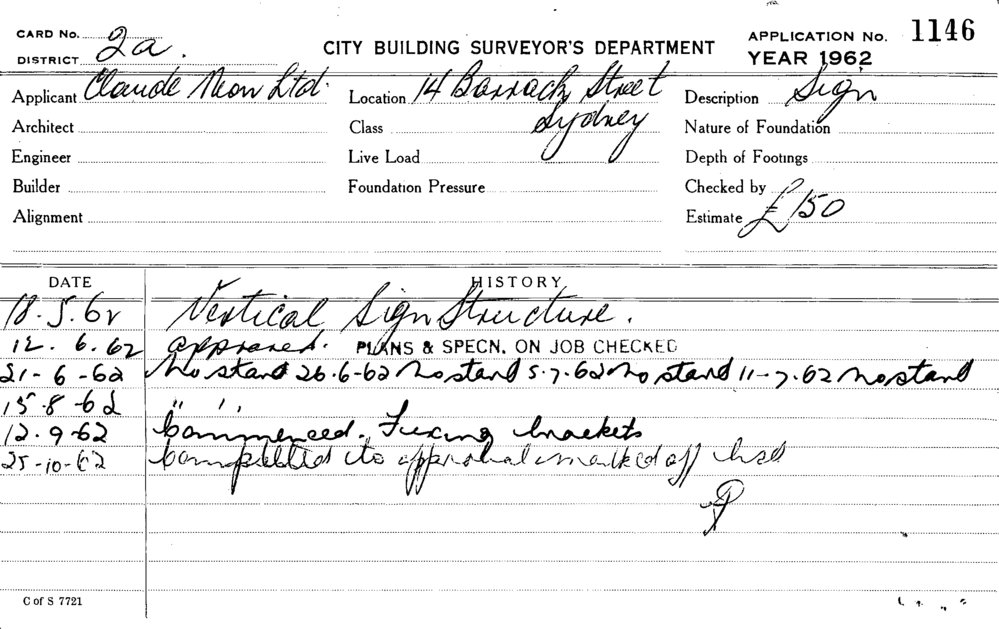 CARD No. 2a.
DISTRICT
CITY BUILDING SURVEYOR'S DEPARTMENT
APPLICATION No. 1146
YEAR 1962
Applicant Claude Neon Ltd. Location 14 Barrack Street Description Sign
Architect Class Sydney Nature of Foundation
Engineer Live Load Depth of Footings
Builder Foundation Pressure Checked by
Alignment Estimate £150
DATE HISTORY
18.5.62 Vertical Sign Structure.
12.6.62 approved. PLANS & SPECN. ON JOB CHECKED
21-6-62 No start 26.6-62 No start 5.7.62 No start 11-7.62 No start
15.8-62 " "
12.9-62 Commenced. Fixing brackets
25-10-62 Completed to approval marked off
C of S 7721